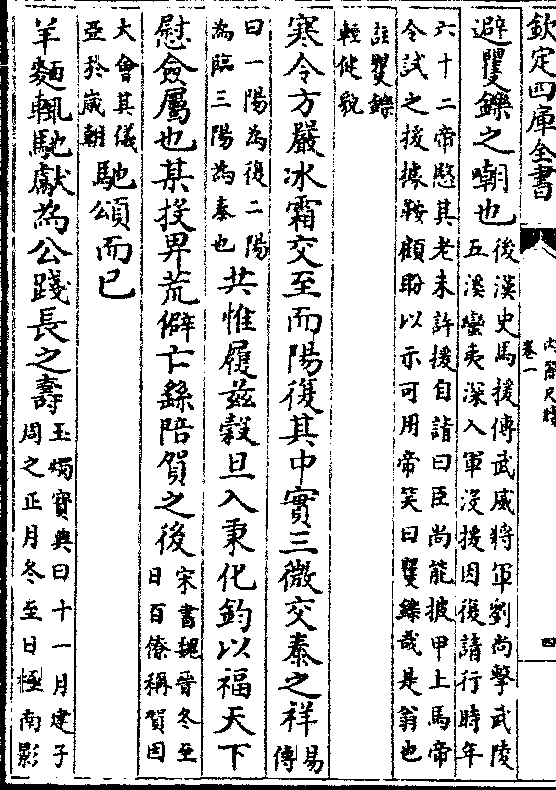 欽定四庫全書
內簡尺牘
卷一
四
避矍鑠之嘲也
後漢史馬援傳武威將軍劉尚擊武陵
五溪蠻夷深入軍沒援因復請行時年
六十二帝愍其老未許援自請曰臣尚能披甲上馬帝
令試之援據鞍顧盼以示可用帝笑曰矍鑠哉是翁也
註矍鑠
輕健貌
寒令方嚴冰霜交至而陽復其中實三微交泰之祥
易
傳
曰一陽為復二陽
為臨三陽為泰也
共惟履茲穀旦入秉化鈞以福天下
慰僉屬也某投畀荒僻亡繇陪賀之後
宋書魏晉冬至
日百僚稱賀因
大會其儀
亞於歲朝
馳頌而已
羊麵輒馳獻為公踐長之壽
玉燭寶典曰十一月建子
周之正月冬至日極南影